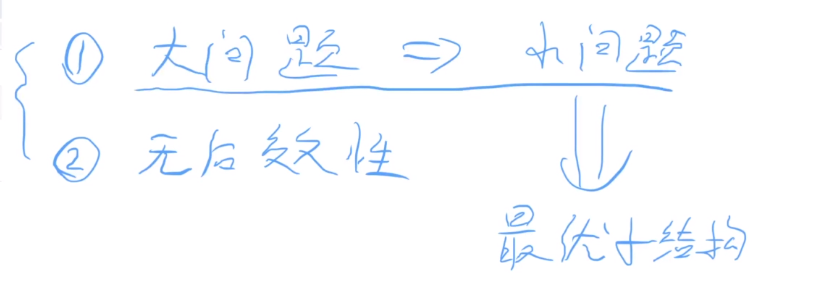 ① 大问题 ⇒ 小问题
② 无后效性
最优子结构